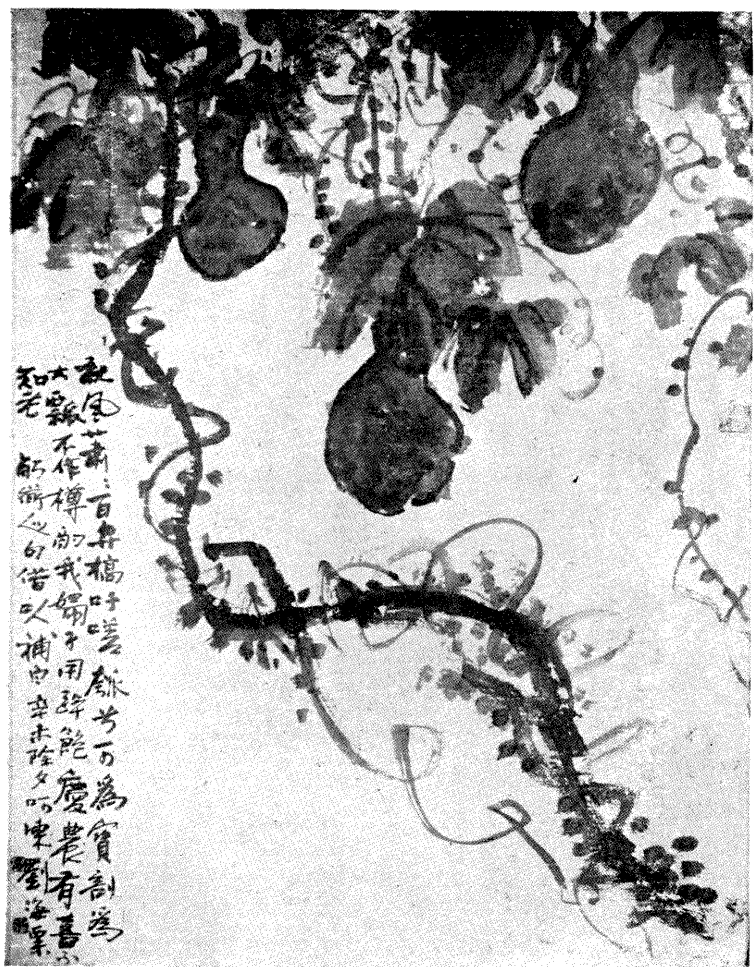 秋風蕭〻百卉槁吁嗟瓠兮可為寶剖為
大瓢不作樽酌我婦子用醉飽慶農有喜不
知老 句借以補白辛未除夕呵凍劉海粟